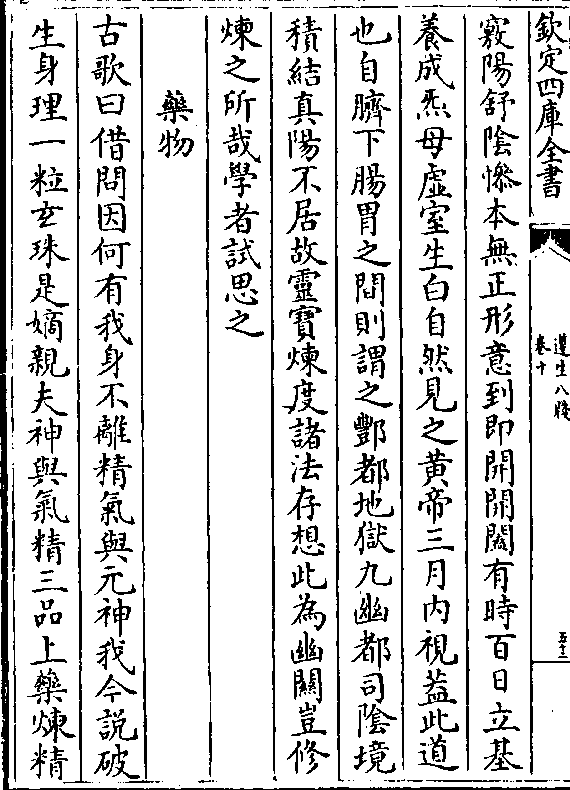 欽定四庫全書
遵生八牋
卷十
五十三
竅陽舒陰慘本無正形意到即開開闔有時百日立基
養成炁母虛室生白自然見之黃帝三月內視葢此道
也自臍下腸胃之間則謂之酆都地獄九幽都司陰境
積結真陽不居故靈寶煉度諸法存想此為幽關豈修
煉之所哉學者試思之
藥物
古歌曰借問因何有我身不離精氣與元神我今説破
生身理一粒玄珠是嫡親夫神與氣精三品上藥煉精